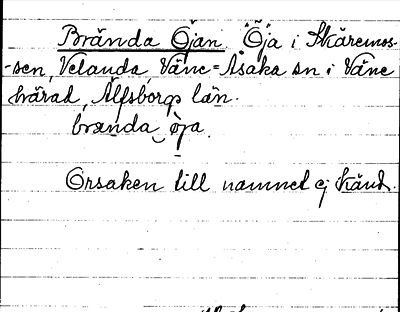 Brända Öjan. "Öja i Skäremos-
-sen, Velanda, Väne=Åsaka sn i Väne
härad, Älfsborgs län.
brænda öja.
Orsaken till namnet ej känd.